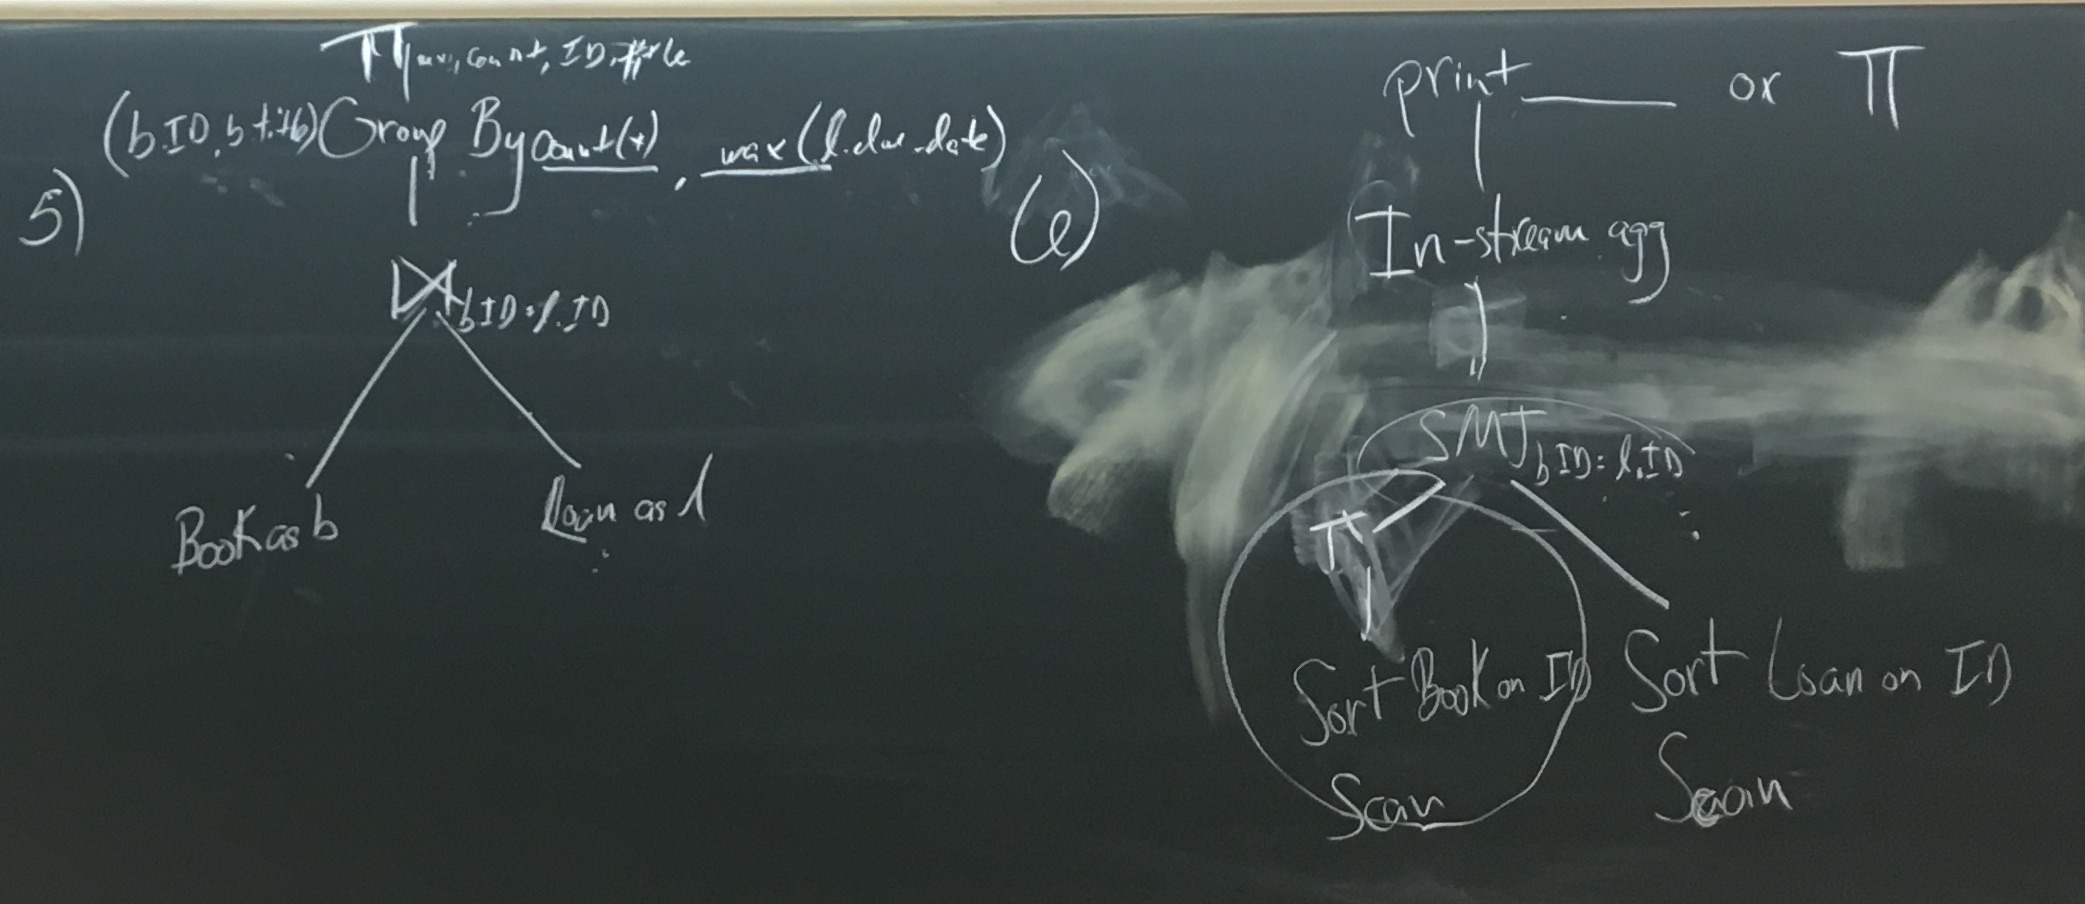 π max, count, ID, title
(b.ID, b.title) Group By count(*), max(l.due_date)
5)
⋈ b.ID = l.ID
Book as b
Loan as l
print ____ or π
6)
In-stream agg
SMJ b.ID = l.ID
π
Sort Book on ID
Sort Loan on ID
Scan
Scan